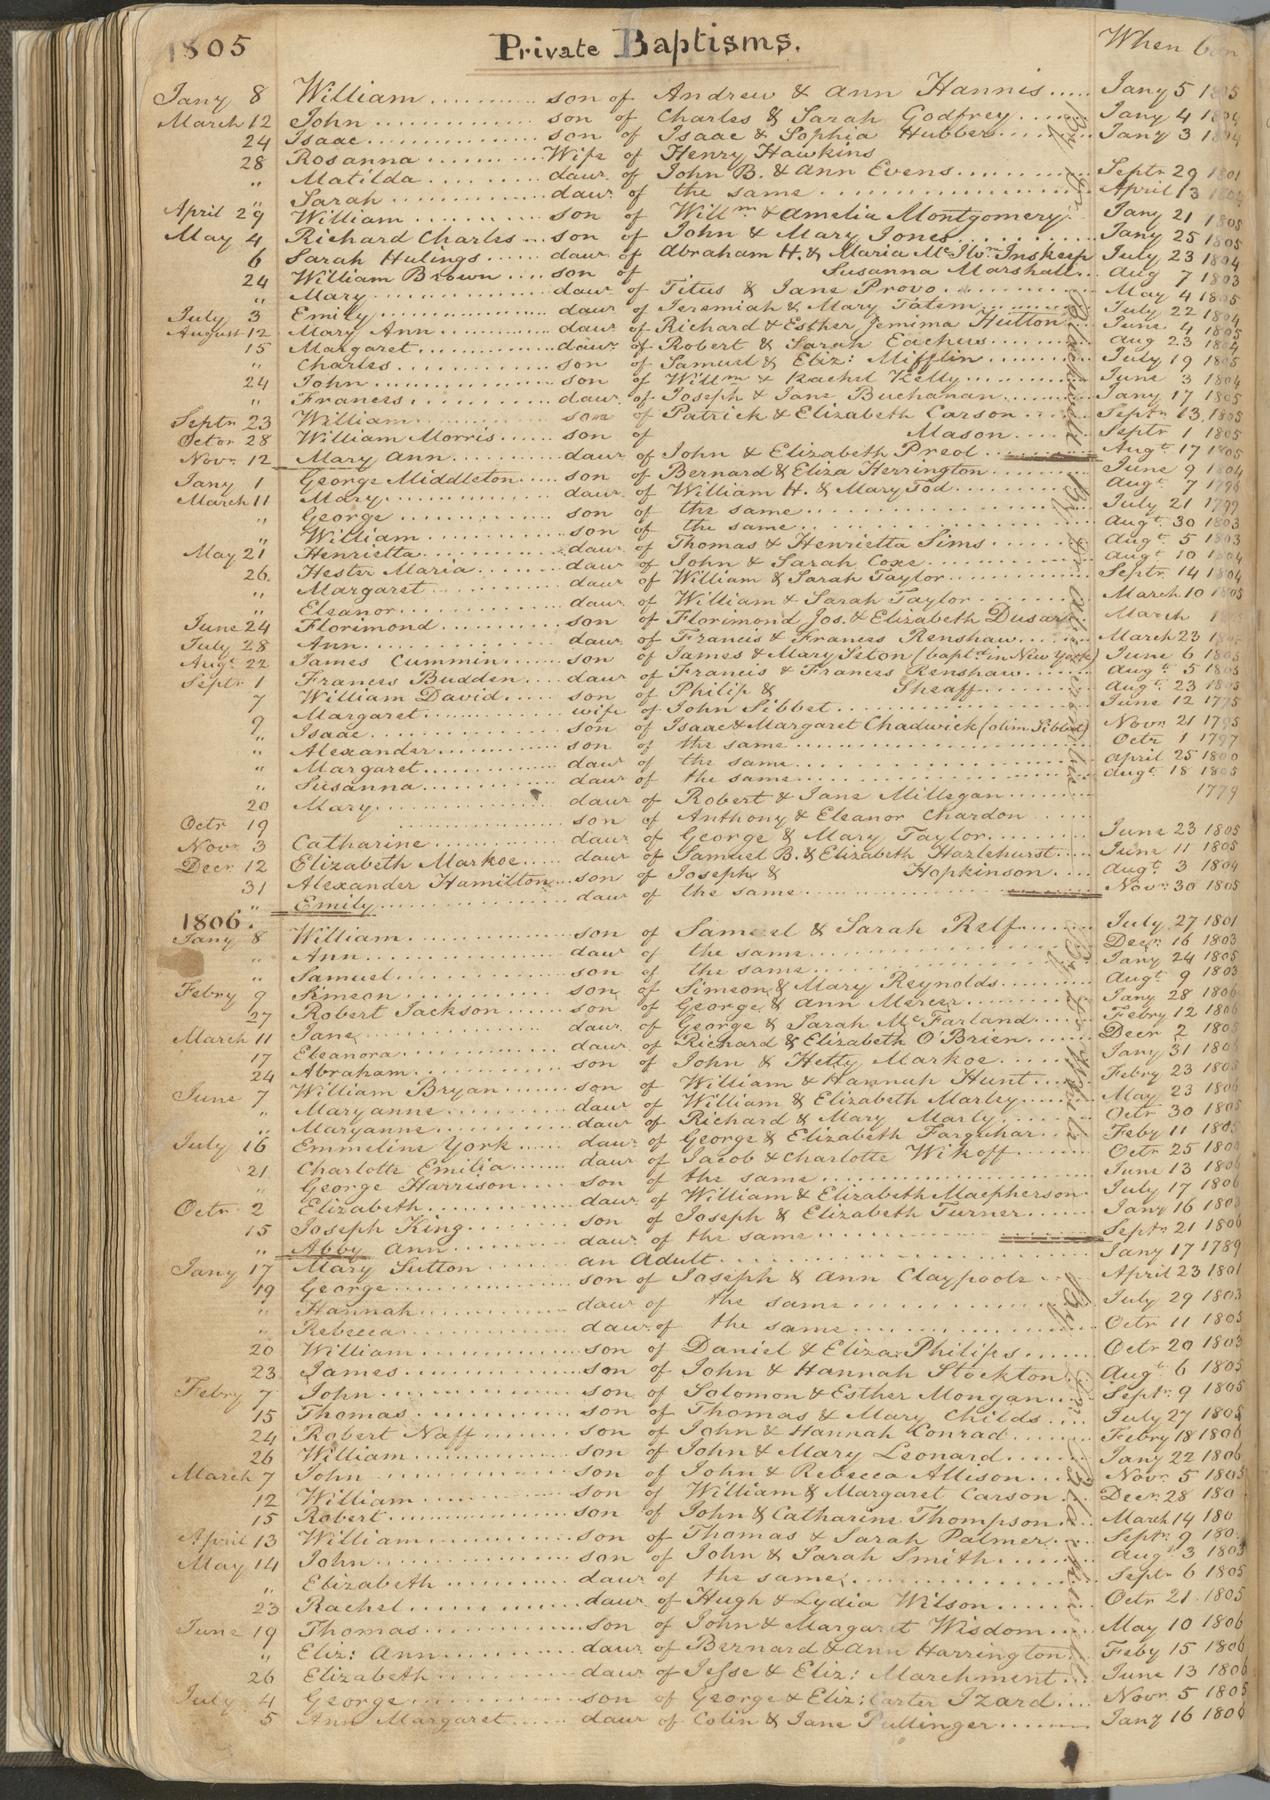 1805 Private Baptisms. When born
Jany 8 William son of Andrew & Ann Hannis Jany 5 1805
March 12 John son of Charles & Sarah Godfrey Jany 4
24 Isaac son of Isaac & Sophia Hubber Jany 3
28 Rosanna Wife of Henry Hawkins
" Matilda daur. of John B. & Ann Evens Septr 29 1801
" Sarah daur. of the same April 13 1804
April 29 William son of Willm & Amelia Montgomery Jany 21 1805
May 4 Richard Charles son of John & Mary Jones Jany 25 1805
6 Sarah Hulings daur. of Abraham H. & Maria McIlvn Inskeep July 23 1804
24 William Brown son of Susanna Marshall Aug 7 1803
" Mary daur of Titus & Jane Provo May 4 1805
July 3 Emily daur of Jeremiah & Mary Tatem July 22 1804
August 12 Mary Ann daur of Richard & Esther Jemima Hutton June 4 1805
15 Margaret daur of Robert & Sarah Eachus Aug 23 1804
" Charles son of Samuel & Eliz: Mifflin July 19 1805
24 John son of Willm & Rachel Kelly June 3 1804
" Frances daur. of Joseph & Jane Buchanan Jany 17 1805
Septr 23 William son of Patrick & Elizabeth Carson Septr 13. 1805
Octor 28 William Morris son of Mason Septr 1 1805
Novr. 12 Mary Ann daur of John & Elizabeth Preol Augt 17 1805
Jany 1 George Middleton son of Bernard & Eliza Herrington June 9 1804
March 11 Mary daur of William H. & Mary Tod Augt 7 1796
" George son of the same July 21 1799
" William son of the same Augt 30 1803
May 21 Henrietta daur of Thomas & Henrietta Sims Augt 5 1803
26 Hester Maria daur of John & Sarah Coxe Augt 10 1804
" Margaret daur of William & Sarah Taylor Septr 14 1804
" Eleanor daur. of William & Sarah Taylor March 10 1805
June 24 Florimond son of Florimond Jos. & Elizabeth Dusar March
July 28 Ann daur. of Francis & Frances Renshaw March 23
Augt 22 James Cummin son of James & Mary Seton (baptd in New York) June 6 1805
Septr 1 Frances Budden daur of Francis & Frances Renshaw Augt 5 1803
7 William David son of Philip & Sheaff Augt. 23
" Margaret wife of John Sibbet June 12 1775
9 Isaac son of Isaac & Margaret Chadwick (olim Sibbet) Novr 21 1795
" Alexander son of the same Octr 1 1797
" Margaret daur of the same April 25 1800
" Susanna daur of the same Augt 18 1805
20 Mary daur of Robert & Jane Millegan 1779
Octr 19 son of Anthony & Eleanor Chardon
Novr 3 Catharine daur of George & Mary Taylor June 23 1805
Decr 12 Elizabeth Markoe daur of Samuel B. & Elizabeth Hazlehurst June 11 1805
31 Alexander Hamilton son of Joseph & Hopkinson Augt 3 1804
" Emily daur of the same Novr 30 1805
1806.
Jany 8 William son of Samuel & Sarah Relf July 27 1801
" Ann daur of the same Decr. 16 1803
" Samuel son of the same Jany 24 1805
Febry 9 Simson son of Simson & Mary Reynolds Augt 9 1803
27 Robert Jackson son of George & Ann Mercer Jany 28 1806
March 11 Jane daur of George & Sarah McFarland Febry 12 1806
17 Eleanora daur of Richard & Elizabeth O'Brien Decr 2 1805
24 Abraham son of John & Hetty Markoe Jany 31 1806
June 7 William Bryan son of William & Hannah Hunt Febry 23
" Maryanne daur of William & Elizabeth Marley May 23 1806
" Maryanne daur of Richard & Mary Marly Octr 30 1805
July 16 Emmeline York daur. of George & Elizabeth Farquhar Feby 11 1805
21 Charlotte Emilia daur of Jacob & Charlotte Wikoff Octr 25 1804
" George Harrison son of the same June 13 1806
Octr 2 Elizabeth daur of William & Elizabeth Macpherson July 17 1806
15 Joseph King son of Joseph & Elizabeth Turner Jany 16 1803
" Abby Ann daur. of the same Septr 21 1806
Jany 17 Mary Sutton an Adult Jany 17 1789
19 George son of Joseph & Ann Claypoole April 23 1801
" Hannah daur of the same July 29 1803
" Rebecca daur. of the same Octr 11 1805
20 William son of Daniel & Eliza: Philips Octr 20 1803
23 James son of John & Hannah Stockton Augt 6 1805
Febry 7 John son of Solomon & Esther Mongan Septr. 9 1805
15 Thomas son of Thomas & Mary Childs July 27 1805
24 Robert Naff son of John & Hannah Conrad Febry 18 1806
26 William son of John & Mary Leonard Jany 22 1806
March 7 John son of John & Rebecca Allison Novr 5 1805
12 William son of William & Margaret Carson Decr. 28 180
15 Robert son of John & Catharine Thompson March 14 180
April 13 William son of Thomas & Sarah Palmer Septr. 9 180
May 14 John son of John & Sarah Smith Augt 3 1803
" Elizabeth daur of the same Septr 6 1805
23 Rachel daur of Hugh & Lydia Wilson Octr 21 1805
June 19 Thomas son of John & Margaret Wisdom May 10 1806
" Eliz: Ann daur of Bernard & Ann Harrington Feby 15 1806
26 Elizabeth daur of Jesse & Eliz: Marchment June 13 1806
July 4 George son of George & Eliz: Carter Izard Novr 5 1805
5 Ann Margaret daur of Colin & Jane Pullinger Jany 16 1806
By Dr. Blackwell
By Dr Abercrombie
By Dr White
By Dr. Blackwell